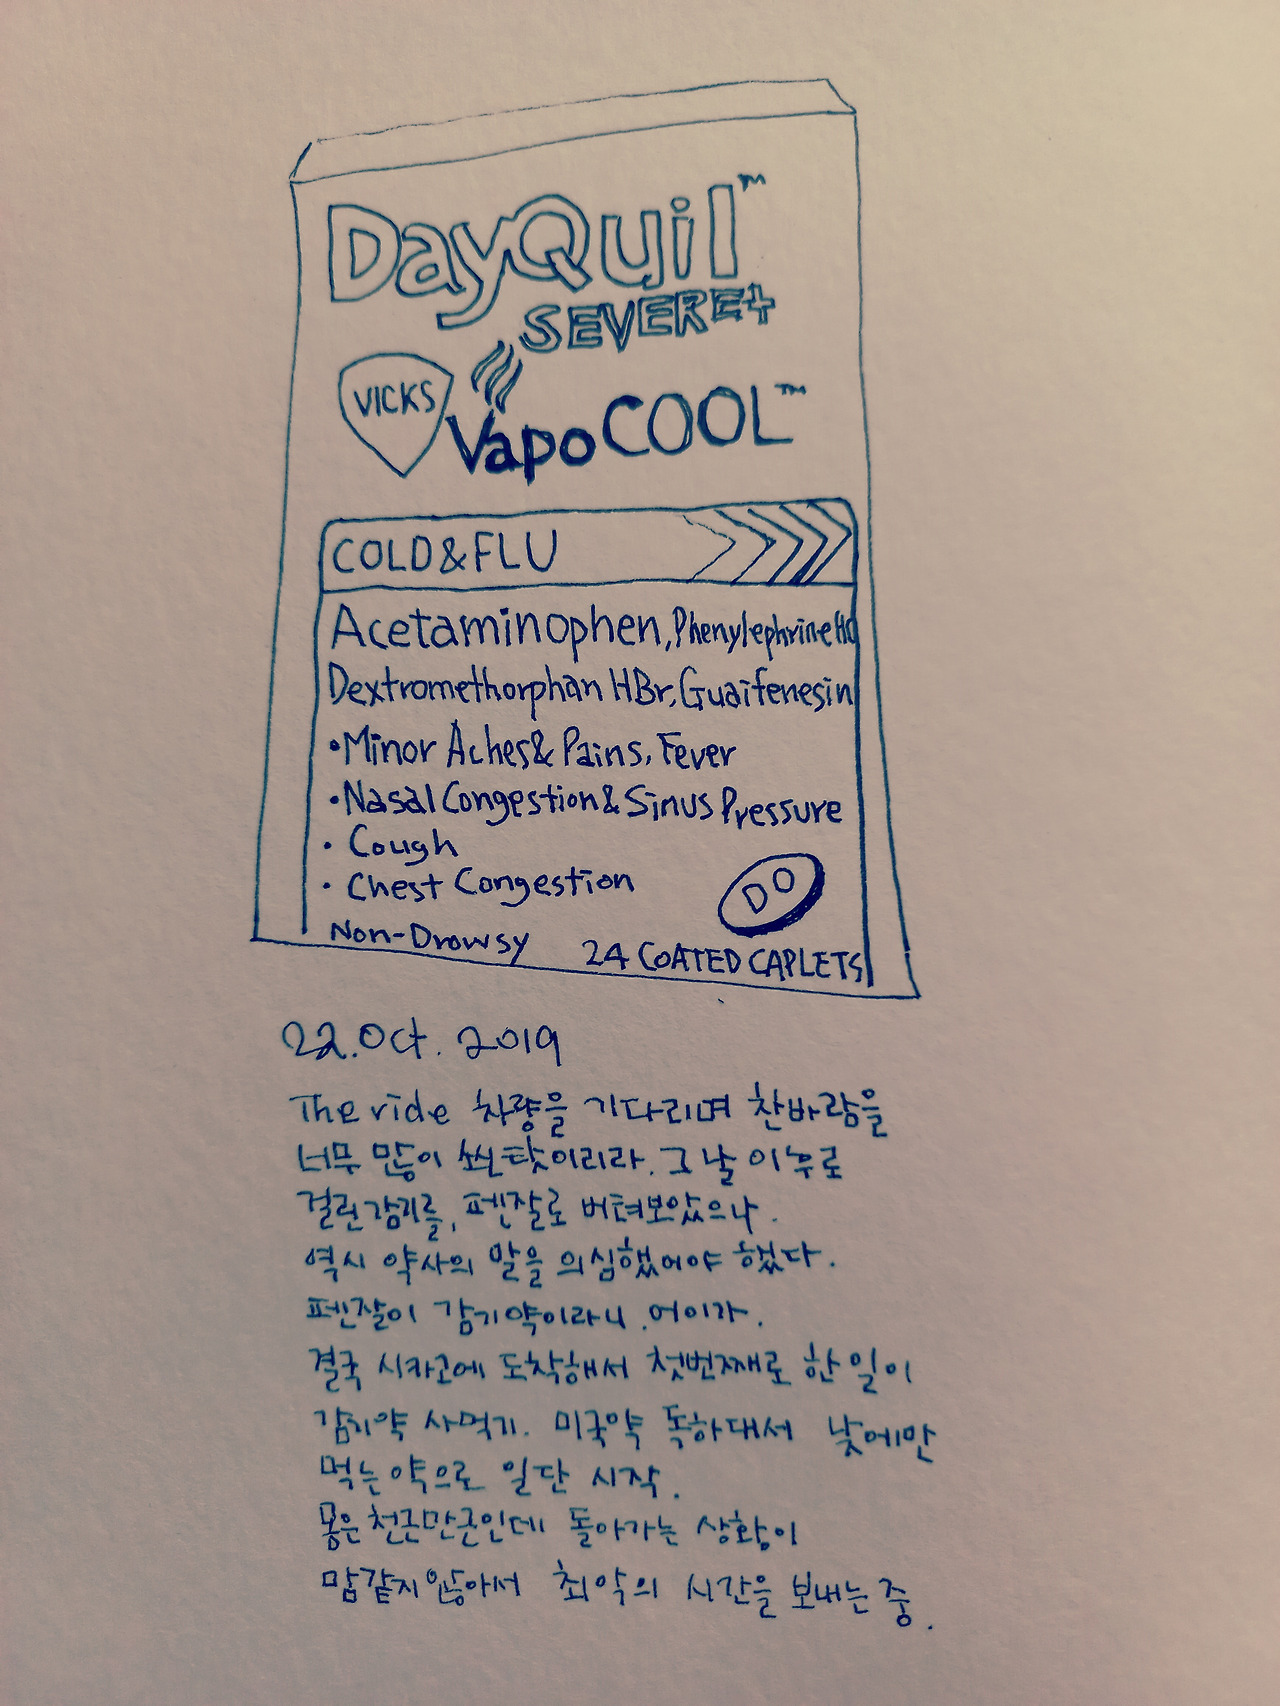 DayQuil™
SEVERE+
VICKS
VapoCOOL™
COLD&FLU
Acetaminophen, Phenylephrine HCl
Dextromethorphan HBr, Guaifenesin
•Minor Aches & Pains, Fever
•Nasal Congestion & Sinus Pressure
• Cough
• Chest Congestion
DO
Non-Drowsy 24 COATED CAPLETS
22. Oct. 2019
The ride 차량을 기다리며 찬바람을
너무 많이 쐰 탓이리라. 그 날 이후로
걸린 감기를, 펜잘로 버텨보았으나.
역시 약사의 말을 의심했어야 했다.
펜잘이 감기약이라니. 어이가.
결국 시카고에 도착해서 첫번째로 한 일이
감기약 사먹기. 미국약 독하대서 낮에만
먹는 약으로 일단 시작.
몸은 천근만근인데 돌아가는 상황이
맘같지 않아서 최악의 시간을 보내는 중.